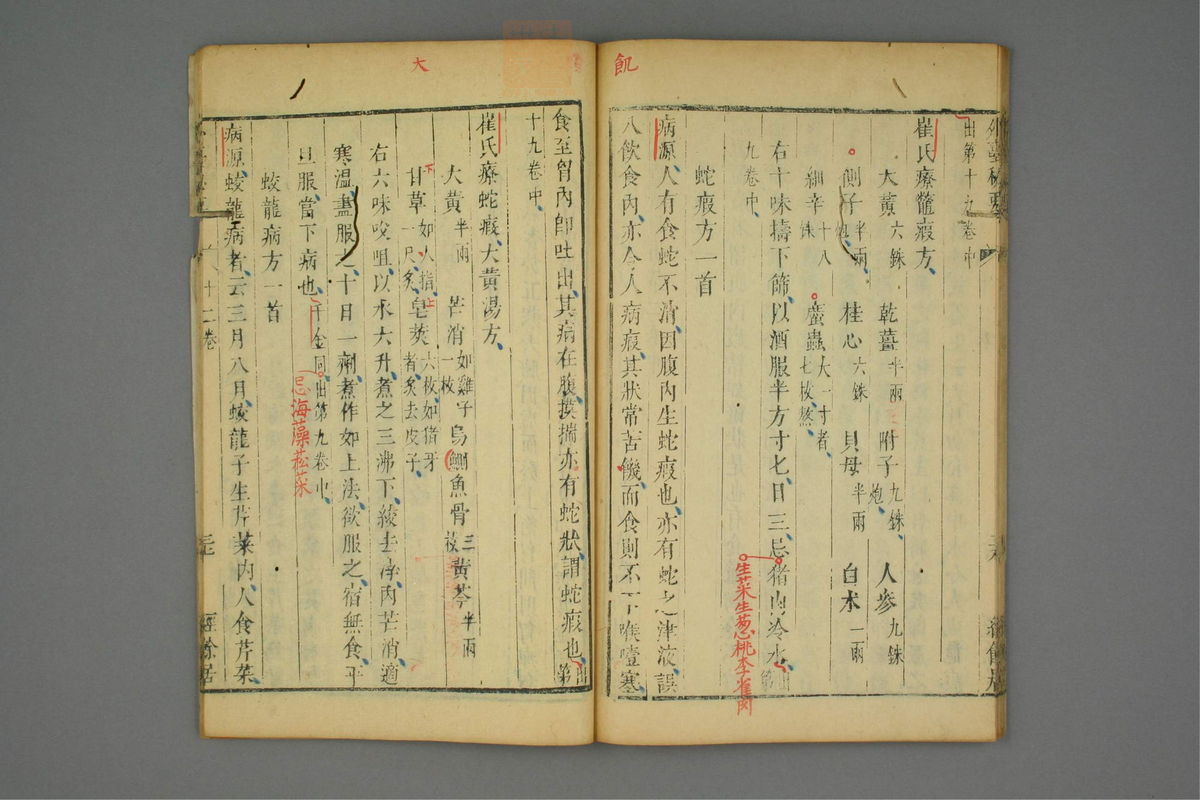 飢
出第十九卷中
崔氏療鼈瘕方
大黃六銖 乾薑半兩 附子九銖炮 人參九銖
側子半兩炮 桂心六銖 貝母半兩 白朮一兩
細辛十八銖 䗪蟲大一寸者七枚熬
右十味擣下篩以酒服半方寸匕日三忌猪肉冷水第
生菜生葱桃李雀肉
九卷中
蛇瘕方一首
病源人有食蛇不消因腹內生蛇瘕也亦有蛇之津液誤
入飲食內亦令人病瘕其狀常苦饑而食則不下喉噎塞
大
食至胷內卽吐出其病在腹摸揣亦有蛇狀謂蛇瘕也出第
十九卷中
崔氏療蛇瘕大黃湯方
大黃半兩 芒消如雞子一枚 烏鰂魚骨三枚 黃芩半兩
甘草如人指一尺炙 皂莢六枚如猪牙者炙去皮子
下
上
右六味㕮咀以水六升煮之三沸下綾去滓內芒消適
寒溫盡服之十日一劑煮作如上法欲服之宿無食平
旦服當下病也千金同出第九卷中
忌海藻菘菜
蛟龍病方一首
病源蛟龍病者云三月八月蛟龍子生芹菜內人食芹菜
十二卷
經餘居